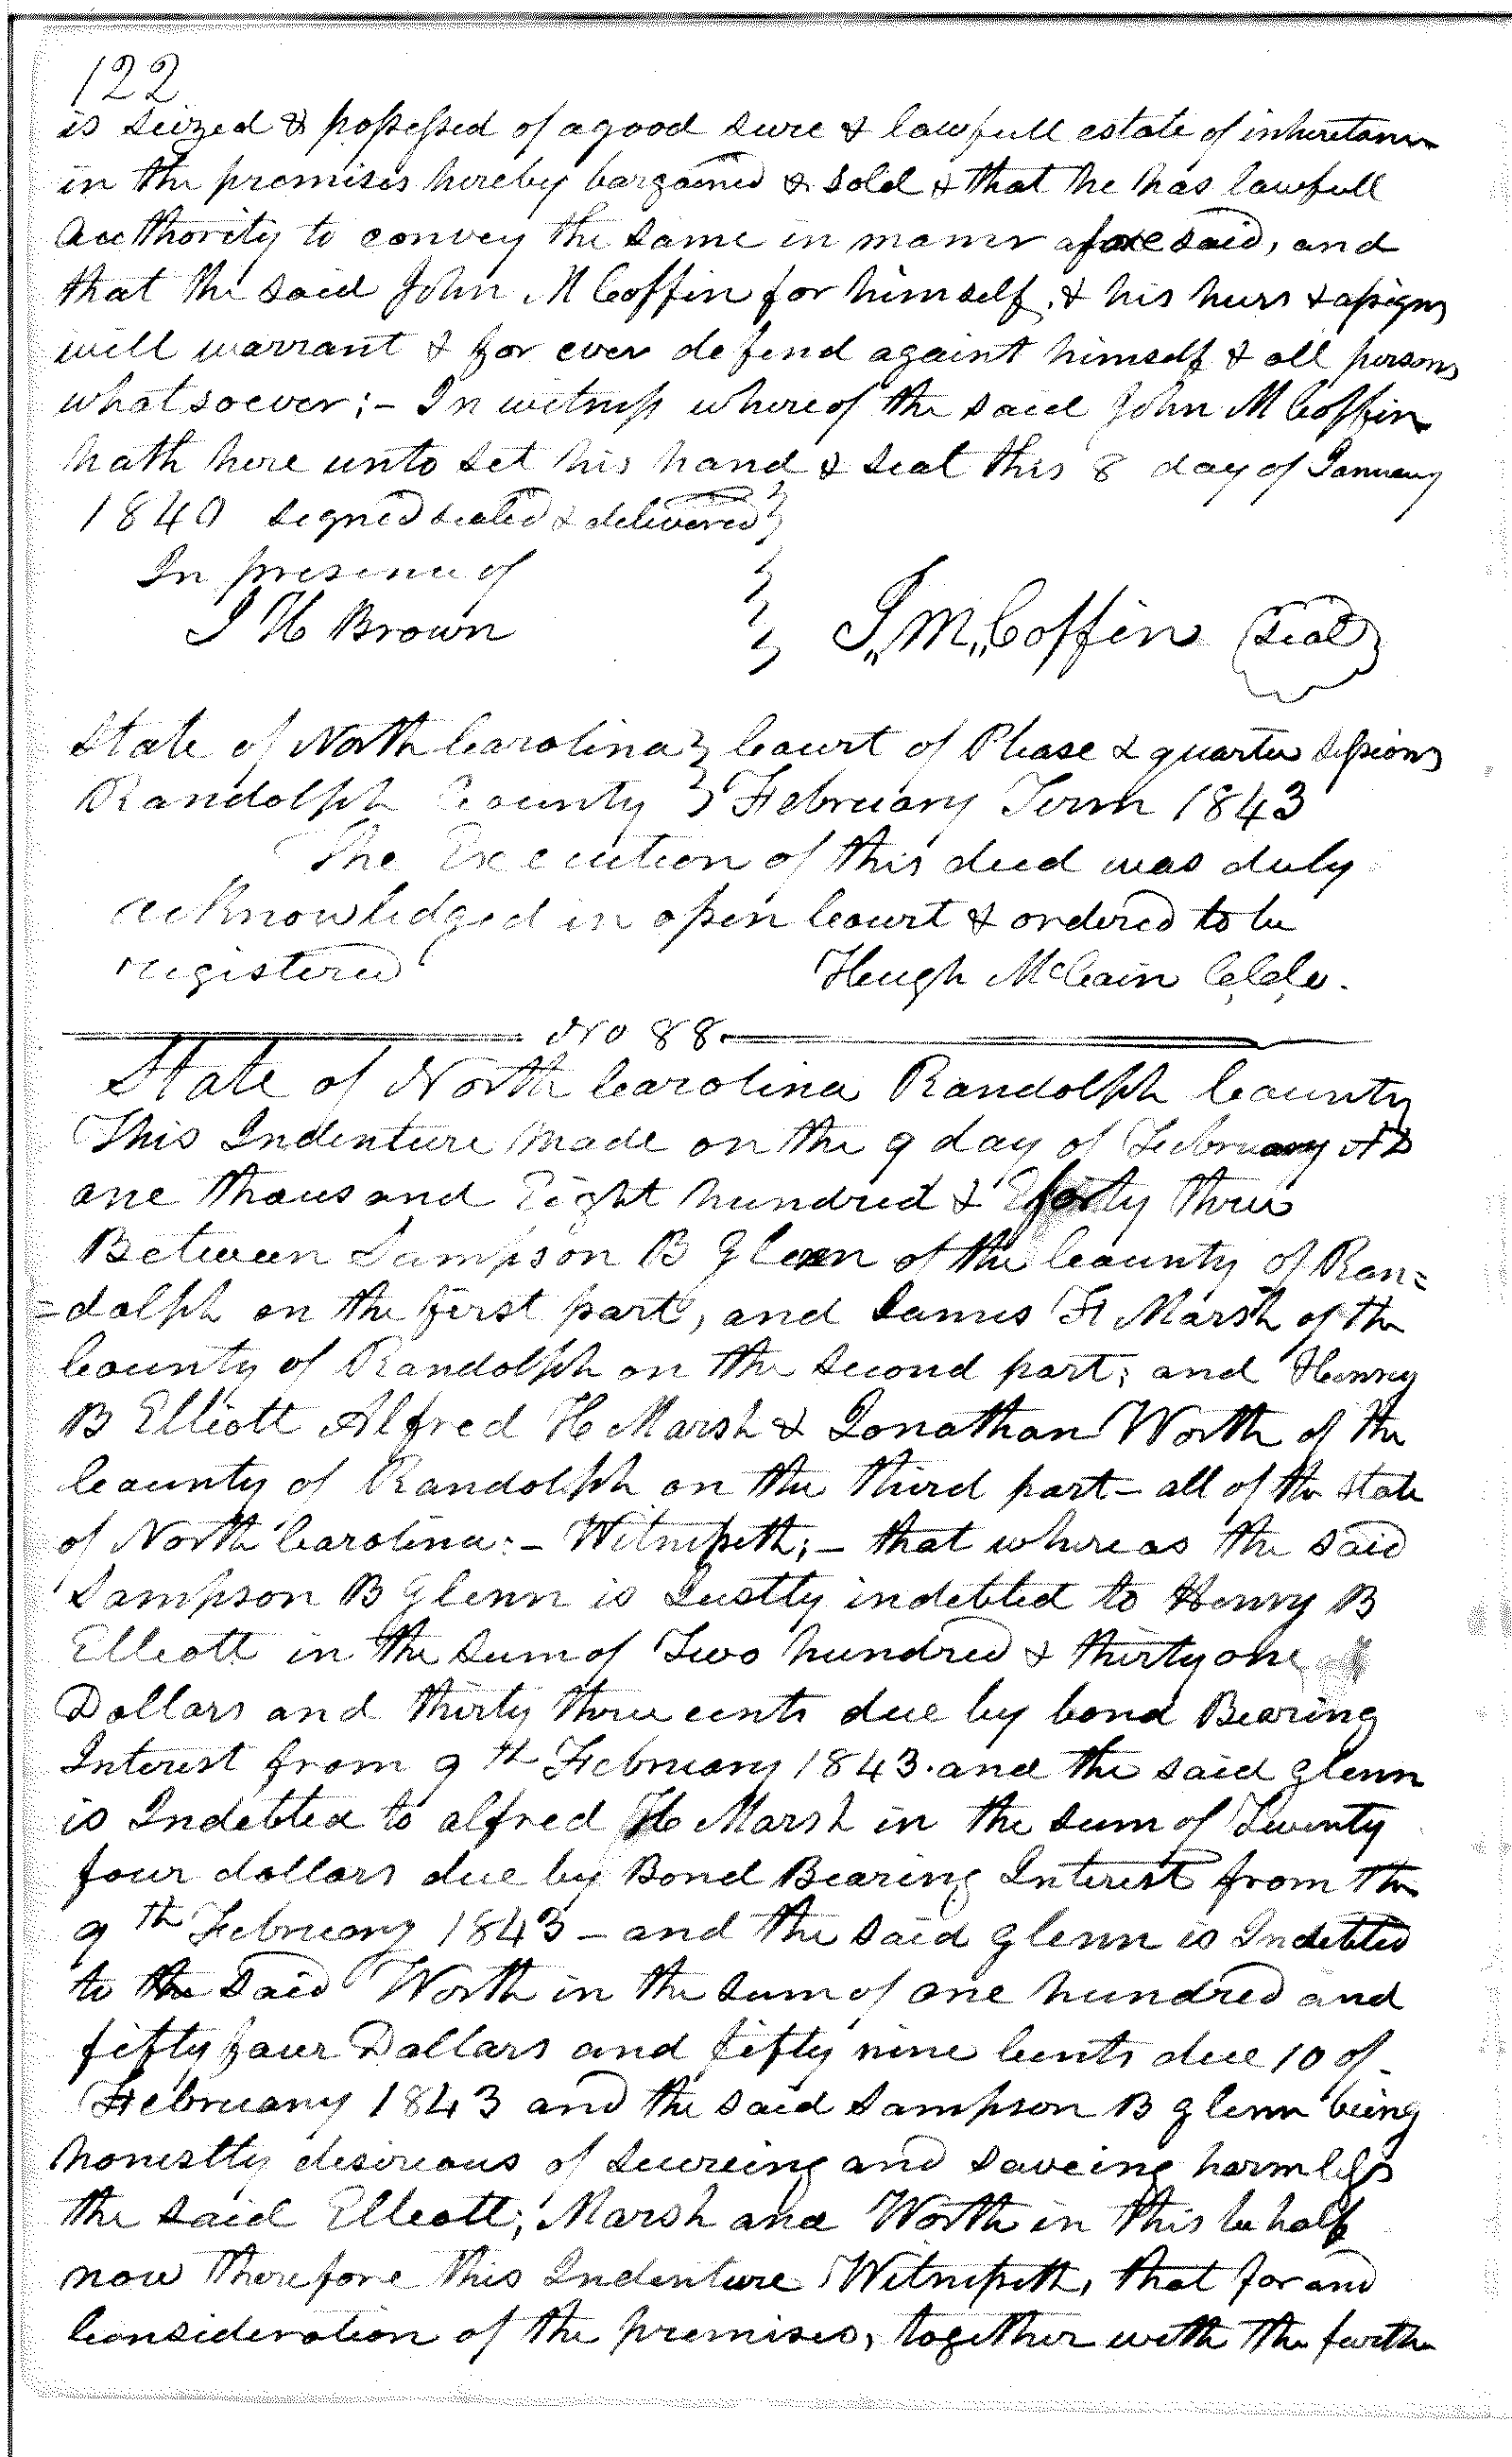 122
is seized & possessed of a good sure & lawfull estate of inheritance
in the premises hereby bargained & sold & that he has lawfull
authority to convey the same in maner aforesaid, and
that the said John M Coffin for himself, & his heirs & assigns
will warrant & for ever defend againt himself & all persons
whatsoever;- In witness whereof the said John M Coffin
hath here unto set his hand & seal this 8 day of January
1840 signed sealed & delivered
In presence of
J H Brown J,, M,, Coffin Seal
State of North Carolina } Court of Please & quarter Sessions
Randolph County } February Term 1843
The Execution of this deed was duly
acknowledged in open Court & ordered to be
registered Hugh McCain Clk.
No 88.
State of North Carolina Randolph County
This Indenture made on the 9 day of February AD
one thousand Eight hundred & forty three
Between Sampson B Glenn of the County of Ran=
=dolph on the first part, and James F Marsh of the
County of Randolph on the second part; and Henry
B Elliott Alfred H Marsh & Jonathan Worth of the
County of Randolph on the third part - all of the state
of North Carolina:- Witnesseth;- that whereas the said
Sampson B Glenn is Justly indebted to Henry B
Elliott in the sum of Two hundred & thirty one
Dollars and thirty three cents due by bond Bearing
Interest from 9th February 1843. and the said glenn
is Indebted to alfred H Marsh in the sum of Twenty
four dollars due by Bond Bearing Interest from the
9th February 1843 - and the said glenn is Indebted
to the said Worth in the sum of one hundred and
fifty four Dollars and fifty nine Cents due 10 of
February 1843 and the said Sampson B glenn being
honestly desireous of secureing and saveing harmless
the said Elliott, Marsh and Worth in this behalf
now therefore this Indenture Witnesseth, that for and
Consideration of the premises, together with the further